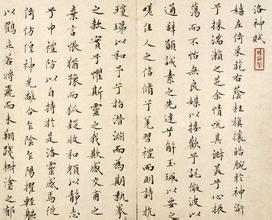 洛神賦
左倚采旄右蔭桂旗攘皓腕於神滸
兮採湍瀨之玄芝余情悅其淑美兮心振
蕩而不怡無良媒以接歡兮託微波而
通辭願誠素之先達兮解玉珮以要之
嗟佳人之信脩兮羌習禮而明詩抗
瓊珶以和予兮指潛淵而為期執眷眷
之款實兮懼斯靈之我欺感交甫之
棄言悵猶豫而狐疑收和顏以靜志
兮申禮防以自持於是洛靈感焉徙
倚傍徨神光離合乍陰乍陽擢輕軀
以鶴立若將飛而未翔踐椒塗之郁